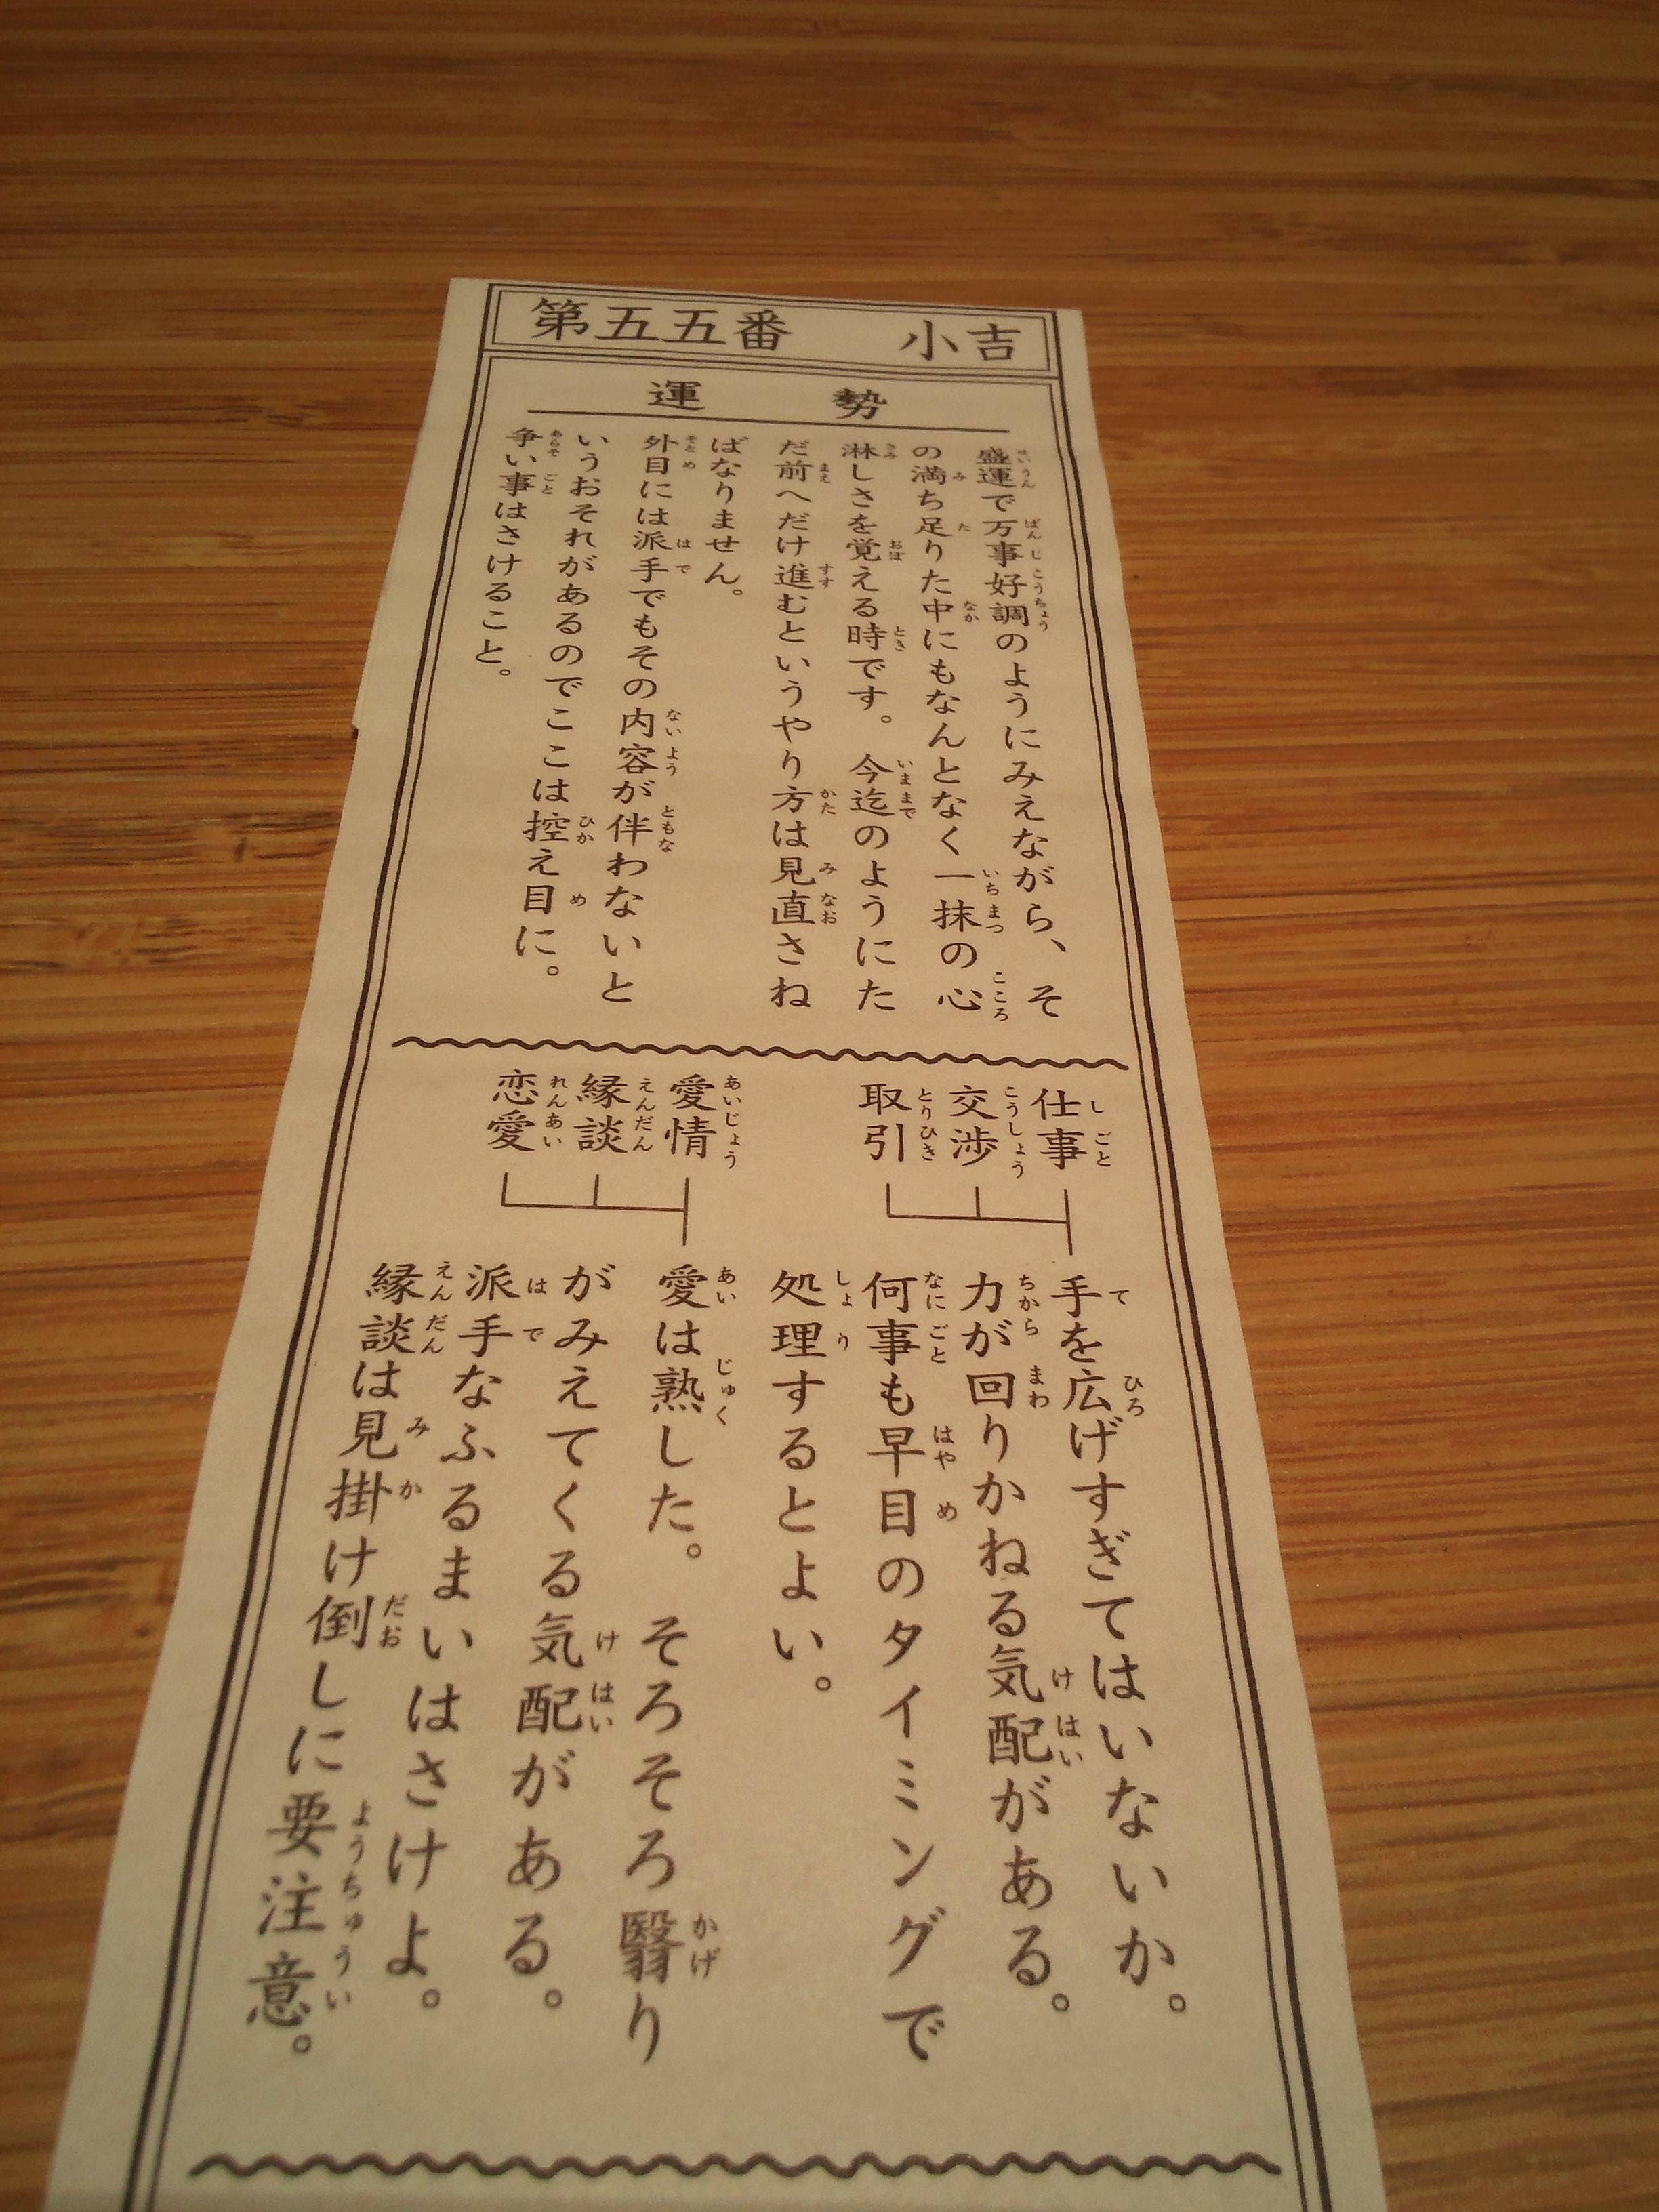 第五五番　小吉
運勢
盛運で万事好調のようにみえながら、そ
の満ち足りた中にもなんとなく一抹の心
淋しさを覚える時です。今迄のようにた
だ前へだけ進むというやり方は見直さね
ばなりません。
外目には派手でもその内容が伴わないと
いうおそれがあるのでここは控え目に。
争い事はさけること。
仕事
交渉
取引
手を広げすぎてはいないか。
力が回りかねる気配がある。
何事も早目のタイミングで
処理するとよい。
愛情
縁談
恋愛
愛は熟した。そろそろ翳り
がみえてくる気配がある。
派手なふるまいはさけよ。
縁談は見掛け倒しに要注意。